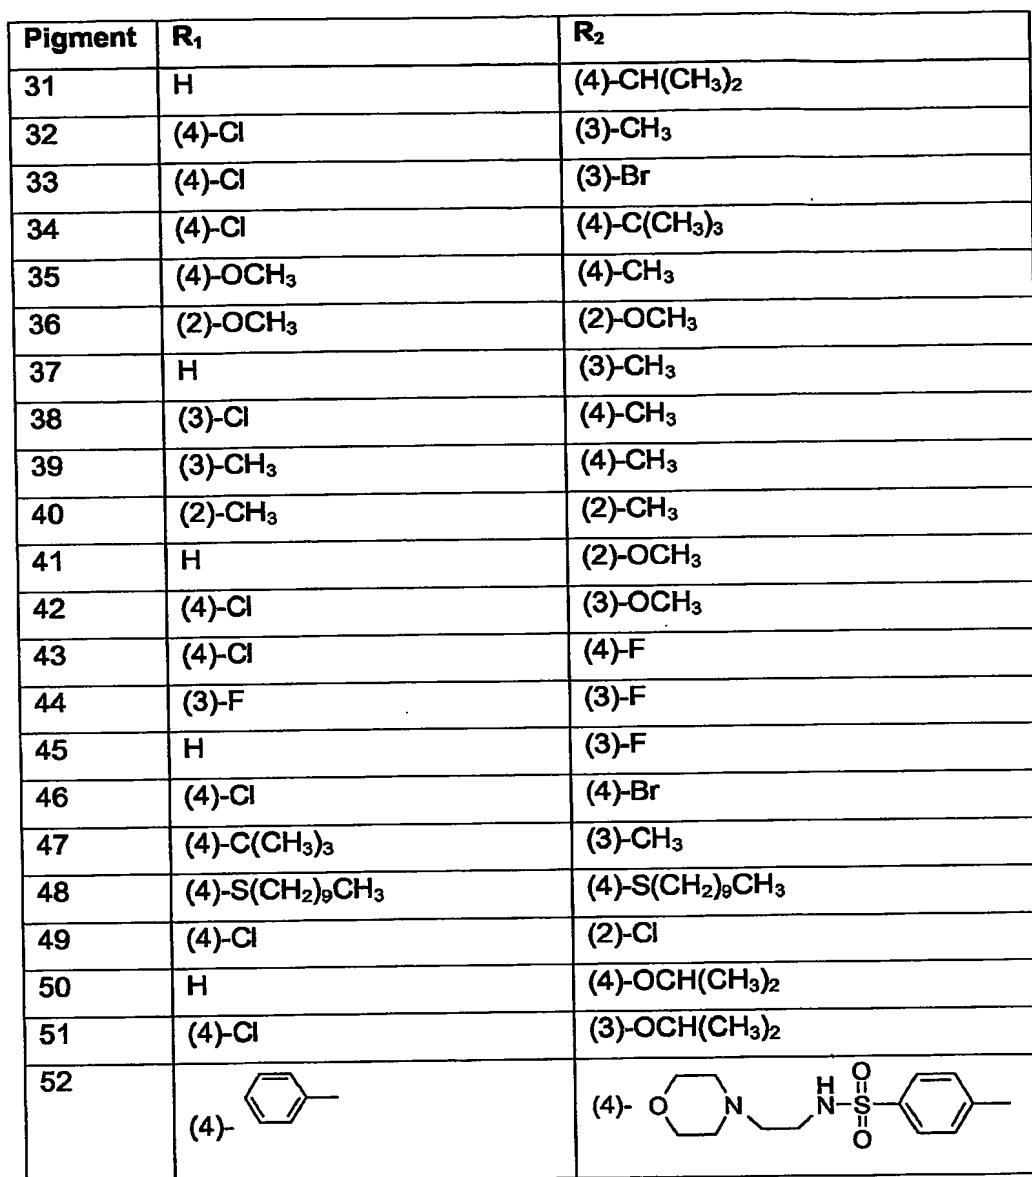 Pigment R₁ R₂
31 H (4)-CH(CH₃)₂
32 (4)-Cl (3)-CH₃
33 (4)-Cl (3)-Br
34 (4)-Cl (4)-C(CH₃)₃
35 (4)-OCH₃ (4)-CH₃
36 (2)-OCH₃ (2)-OCH₃
37 H (3)-CH₃
38 (3)-Cl (4)-CH₃
39 (3)-CH₃ (4)-CH₃
40 (2)-CH₃ (2)-CH₃
41 H (2)-OCH₃
42 (4)-Cl (3)-OCH₃
43 (4)-Cl (4)-F
44 (3)-F (3)-F
45 H (3)-F
46 (4)-Cl (4)-Br
47 (4)-C(CH₃)₃ (3)-CH₃
48 (4)-S(CH₂)₉CH₃ (4)-S(CH₂)₉CH₃
49 (4)-Cl (2)-Cl
50 H (4)-OCH(CH₃)₂
51 (4)-Cl (3)-OCH(CH₃)₂
52 (4)- (4)- O N H N S O O